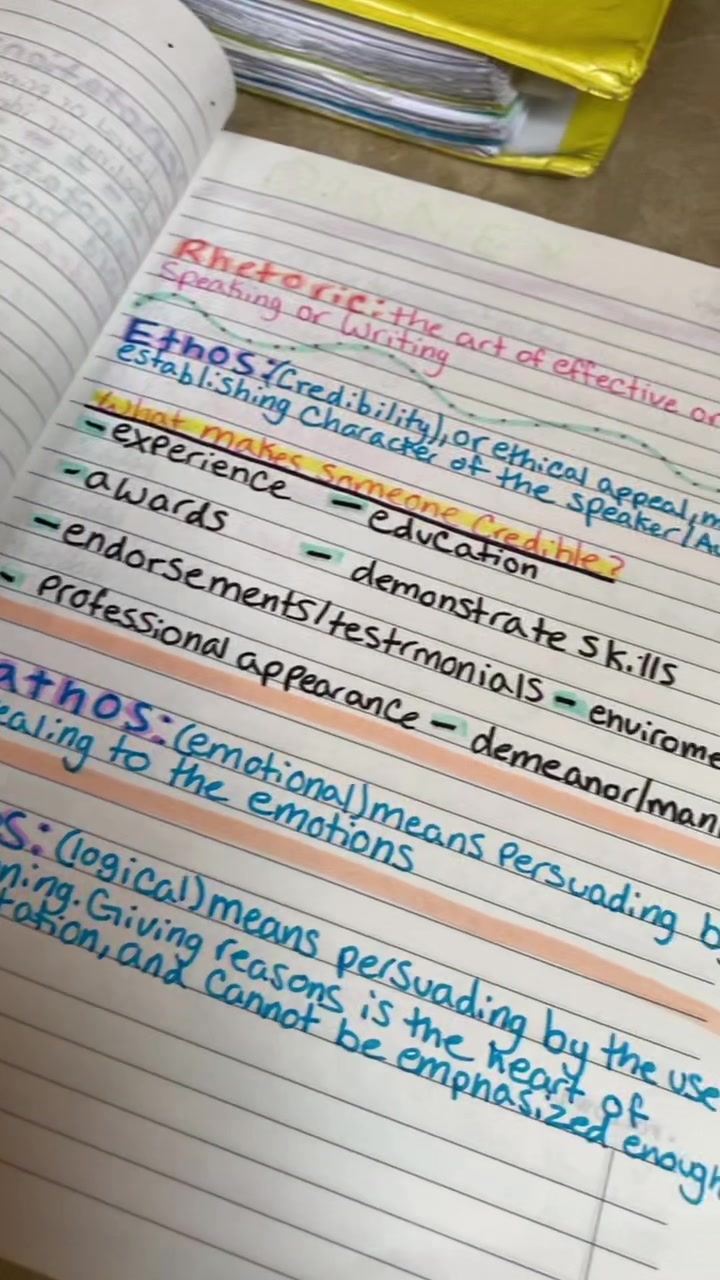 Rhetoric: the art of effective or
Speaking or Writing
Ethos: (Credibility), or ethical appeal, m
establishing Character of the speaker/Au
What makes someone Credible?
-experience - education
-awards - demonstrate skills
-endorsements/testrmonials - envirome
- professional appearance - demeanor/man
athos: (emotional) means Persuading b
ealing to the emotions
s: (logical) means persuading by the use
ning. Giving reasons is the heart of
tation, and cannot be emphasized enough